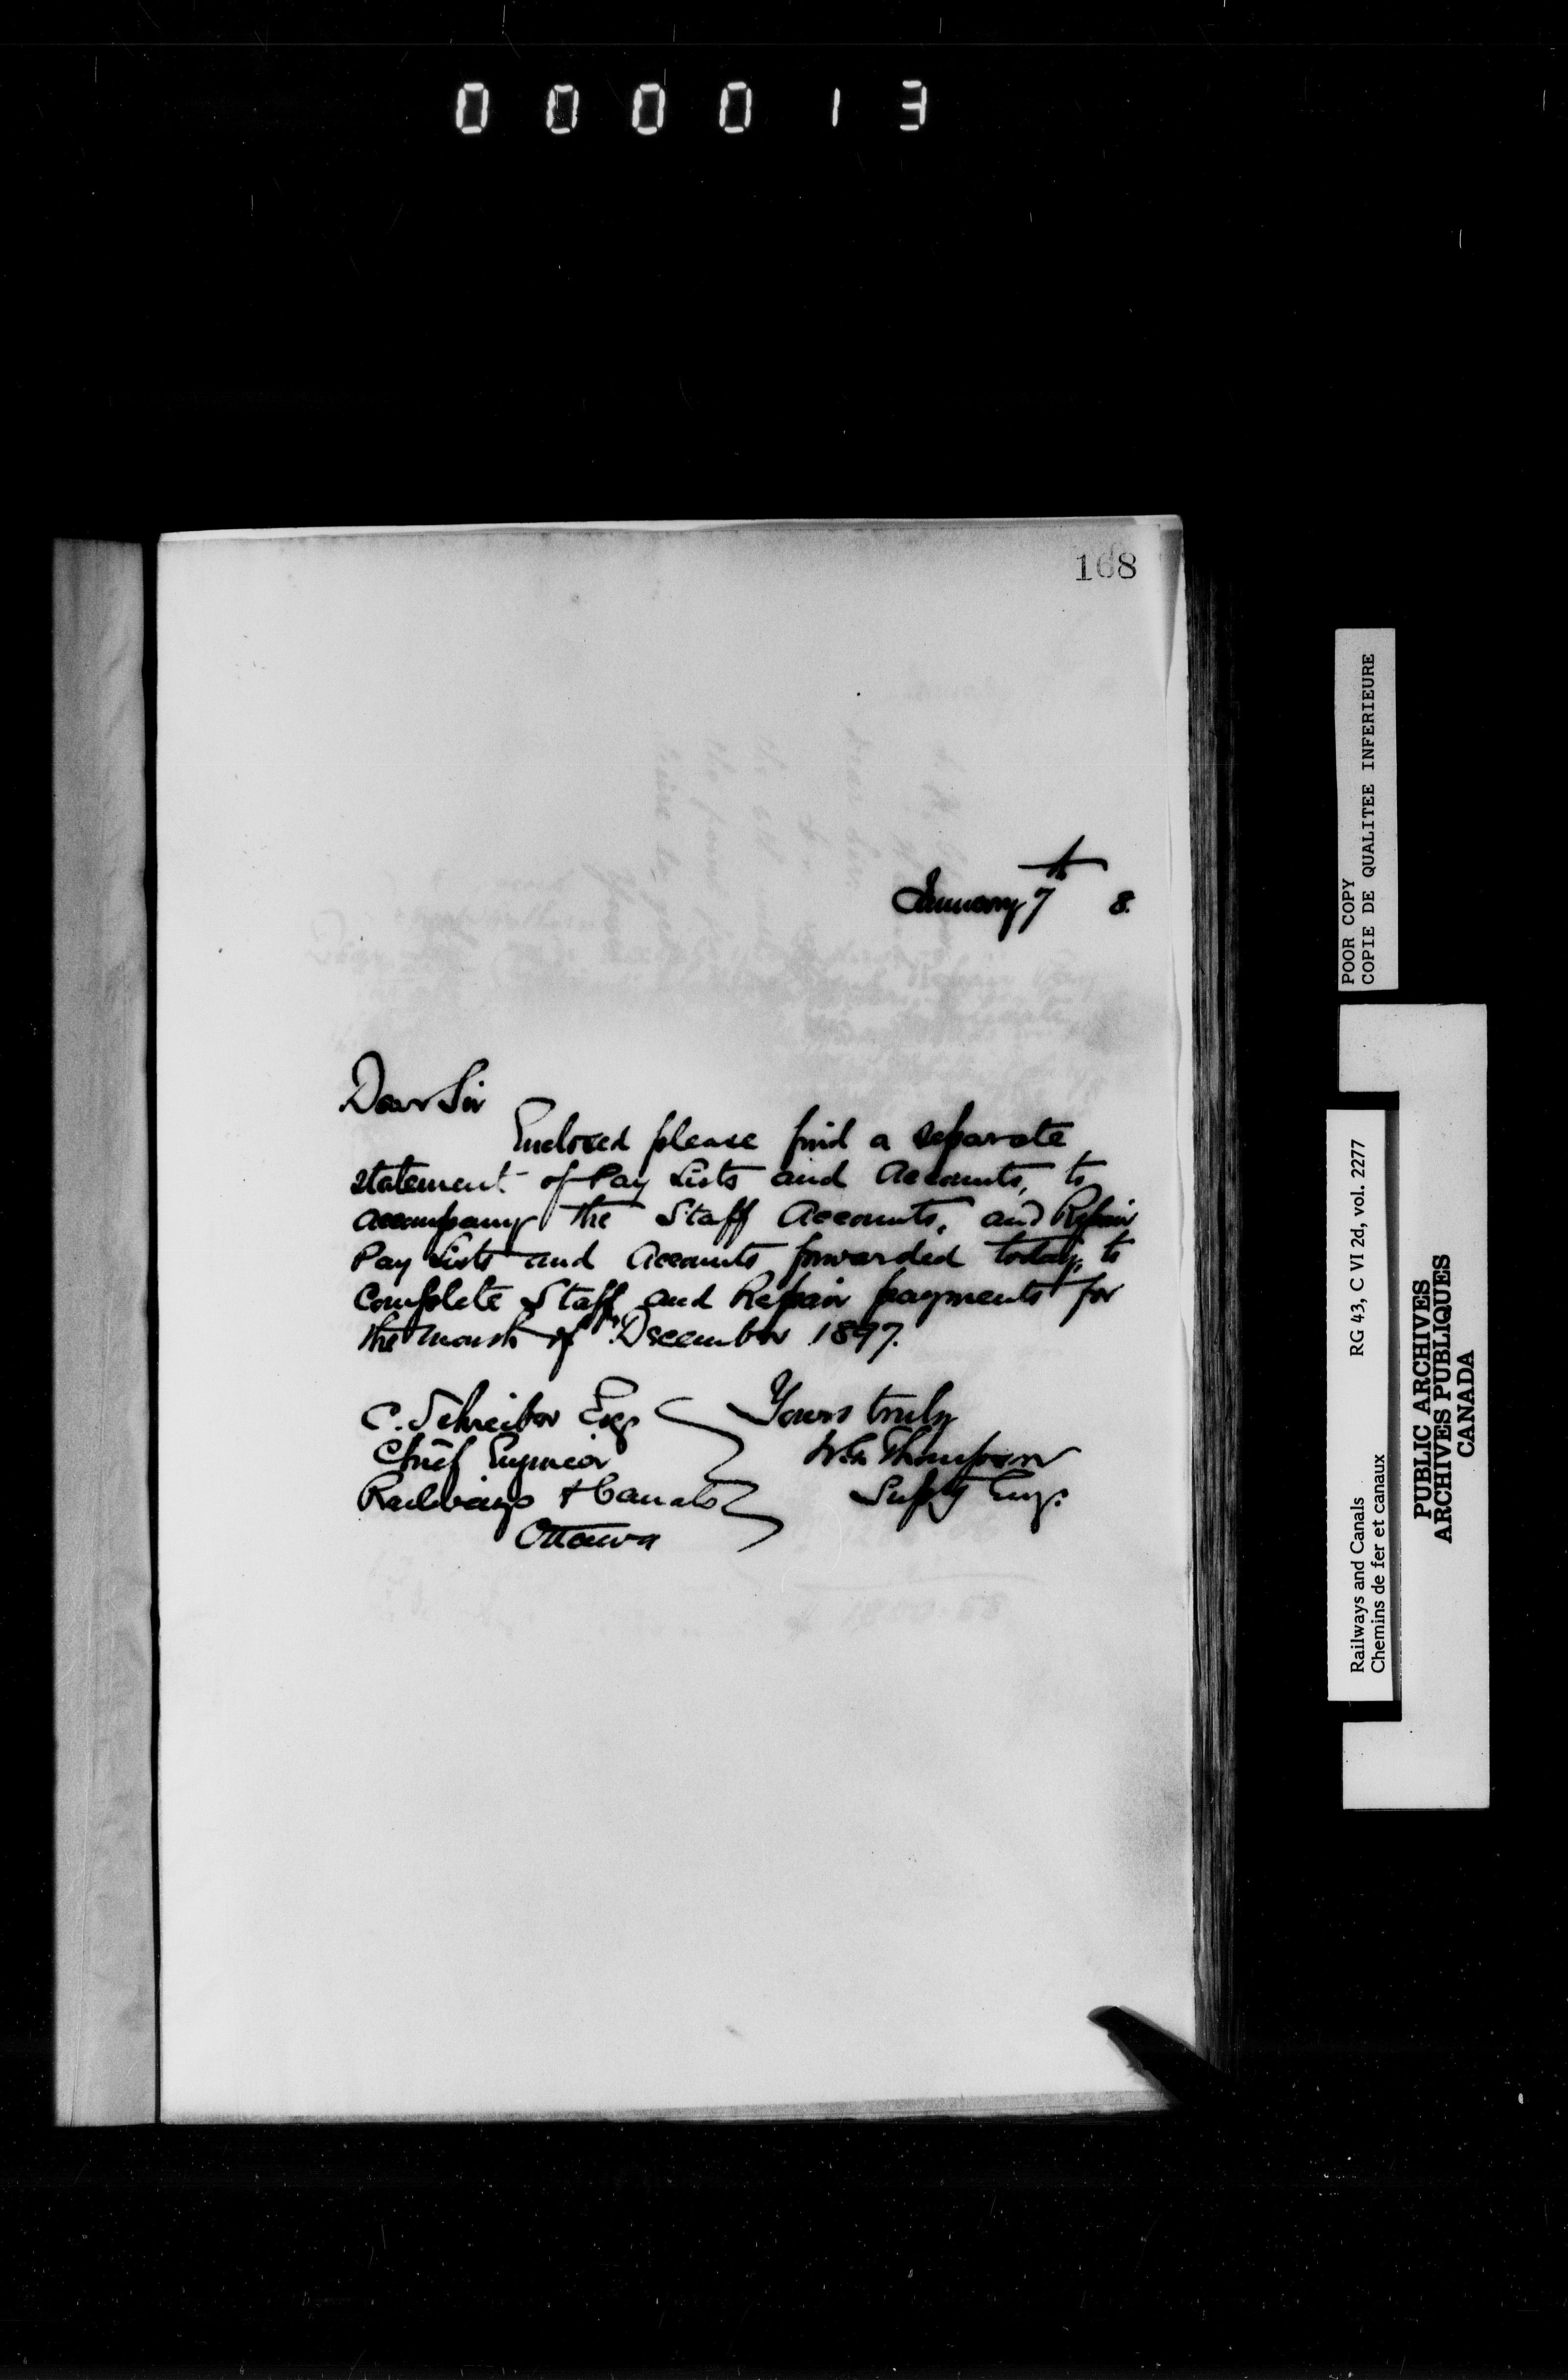 000013
168
January 7th 8.
Dear Sir
Enclosed please find a separate
statement of Pay Lists and Accounts, to
accompany the Staff Accounts, and Repair
Pay Lists and Accounts forwarded today, to
Complete Staff and Repair payments for
the month of December 1897.
C. Schreiber Esq Yours truly
Chief Engineer Thompson
Railways & Canals Supt'g Eng.
Ottawa
POOR COPY
COPIE DE QUALITEE INFERIEURE
Railways and Canals RG 43, C VI 2d, vol. 2277
Chemins de fer et canaux
PUBLIC ARCHIVES
ARCHIVES PUBLIQUES
CANADA